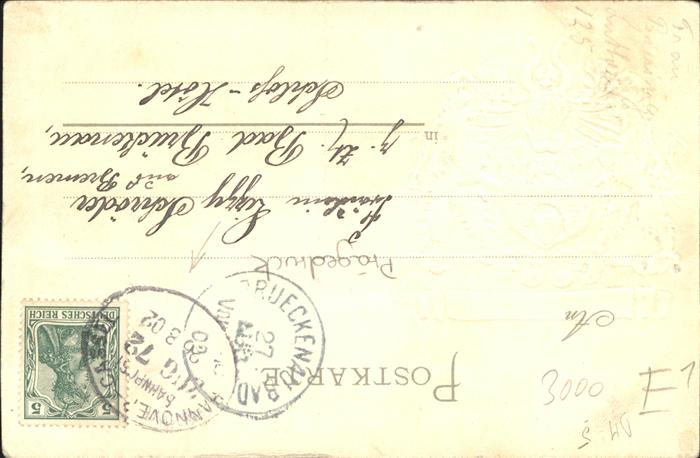 POSTKARTE
An
Prägedruck
Fräulein Lizzy Schröder
aus Bremen,
in z. Zt. Bad Brückenau,
Schloß-Hotel.
DEUTSCHES REICH
5 5
HANNOVER
BAHNPOST
ZUG 72
8 02
CASSEL
BRUECKENAU BAD
27
AUG
02
3000
DM 5
125